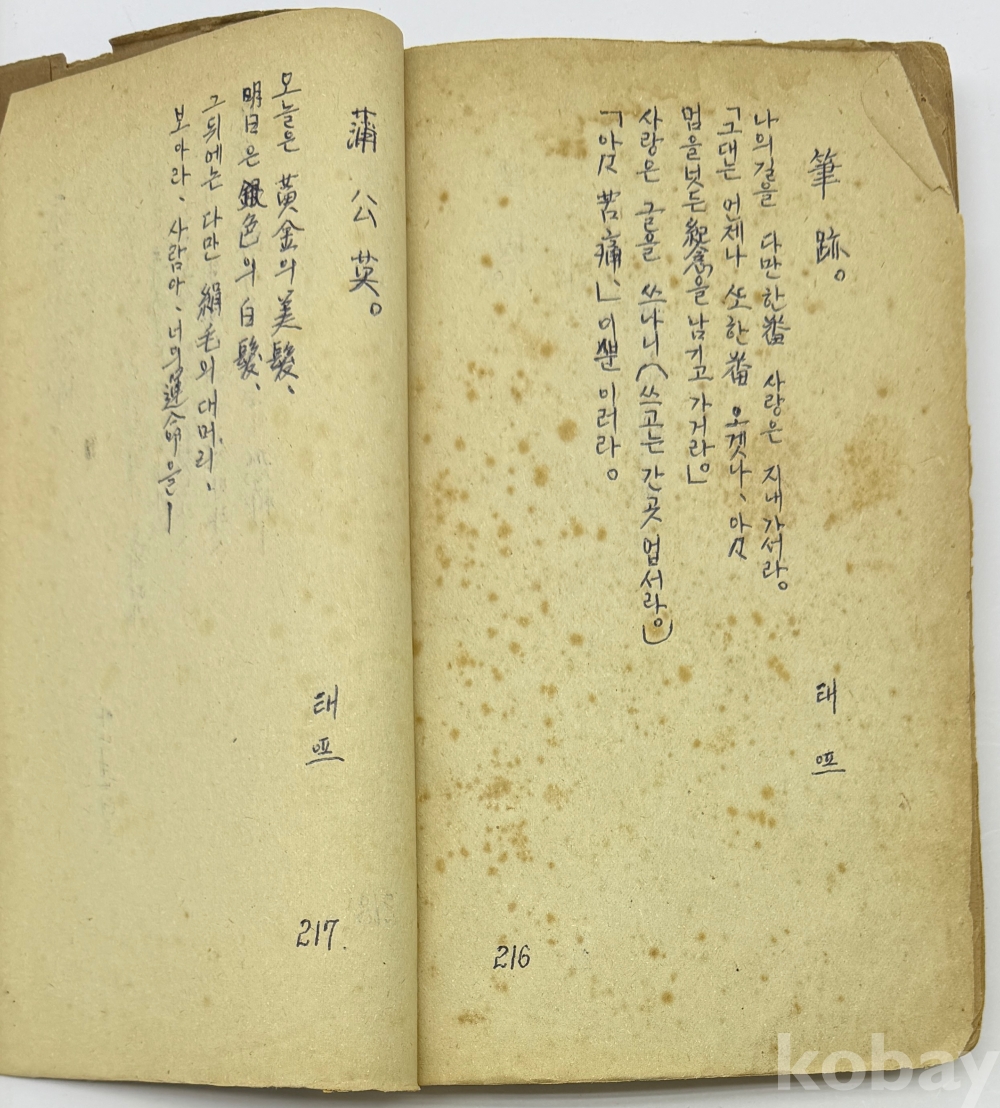 筆跡。
태
나의길을 다만한番 사랑은 지내가서라。
「그대는 언제나 ᄯᅩ한番 오겟나、아々
업을넛든紀念을남기고가거라。」
사랑은 글을 쓰나니(쓰고는간곳업서라。)
「아々 苦痛、」이ᄲᅮᆫ이러라。
216
蒲公英。
태
오늘은 黃金의美髮、
明日은銀色의白髮、
그뒤에는 다만 絹毛의대머리、
보아라、사람아、너의運命을ー
217.
kobay